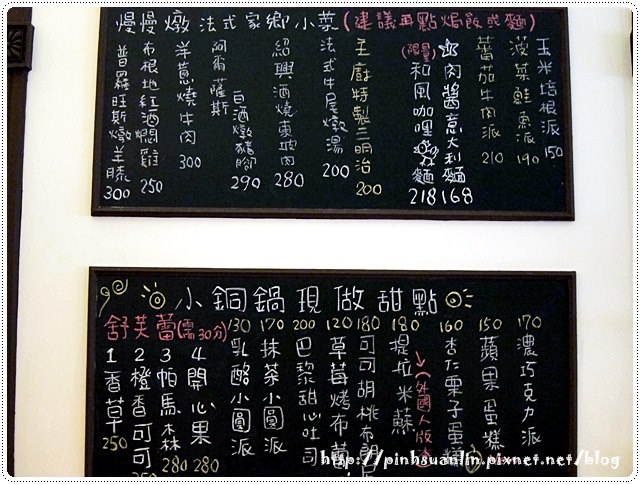 慢慢燉法式家鄉小菜(建議再點焗飯或麵)
玉米培根派 150
菠菜鮭魚派 190
蕃茄牛肉派 210
肉醬意大利麵 168
(限量)和風咖哩麵 218
主廚特製三明治 200
法式牛尾燉湯 200
紹興酒燒東坡肉 280
阿爾薩斯白酒燉豬腳 290
洋蔥燒牛肉 300
布根地紅酒燜雞 250
普羅旺斯燉羊膝 300
小銅鍋現做甜點
170 濃巧克力派
150 蘋果蛋糕
160 杏仁栗子蛋糕
180 提拉米蘇 (外國人版本
180 可可胡桃布
120 草莓烤布蕾
200 巴黎甜心吐司
170 抹茶小圓派
130 乳酪小圓派
舒芙蕾(需30分)
1 香草 250
2 橙香可可 250
3 帕馬森 280
4 開心果 280
http://pinhsuanlin.pixnet.net/blog